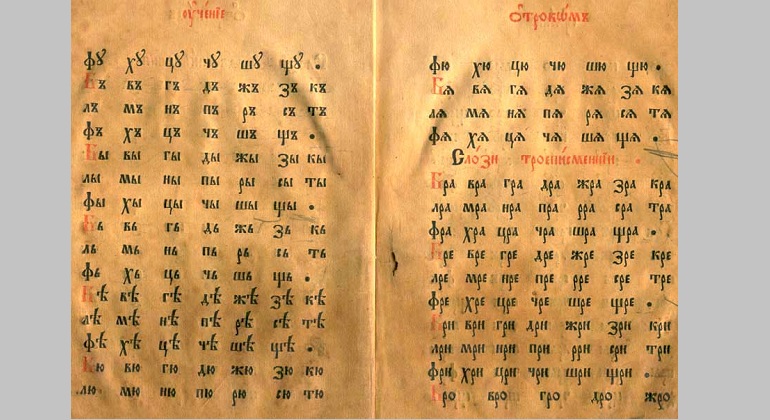 оу҆че́нїе
фꙋ хꙋ цꙋ чꙋ шꙋ щꙋ .
Бъ въ гъ дъ жъ зъ къ
лъ мъ нъ пъ ръ съ тъ
фъ хъ цъ чъ шъ щъ .
Бы вы гы ды жы зы кы
лы мы ны пы ры сы ты
фы хы цы чы шы щы .
Бь вь гь дь жь зь кь
ль мь нь пь рь сь ть
фь хь ць чь шь щь .
Бѣ вѣ гѣ дѣ жѣ зѣ кѣ
лѣ мѣ нѣ пѣ рѣ сѣ тѣ
фѣ хѣ цѣ чѣ шѣ щѣ .
Бю вю гю дю жю зю кю
лю мю ню пю рю сю тю
ѻ҆трокѡ́мъ
фю хю цю чю шю щю .
Бѧ вѧ гѧ дѧ жѧ зѧ кѧ
лѧ мѧ нѧ пѧ рѧ сѧ тѧ
фѧ хѧ цѧ чѧ шѧ щѧ .
Сло́зи троепи́сменнїи .
Бра вра гра дра жра зра кра
лра мра нра пра рра сра тра
фра хра цра чра шра щра .
Бре вре гре дре жре зре кре
лре мре нре пре рре сре тре
фре хре цре чре шре щре .
Бри ври гри дри жри зри кри
лри мри нри при рри сри три
фри хри цри чри шри щри .
Бро вро гро дро жро